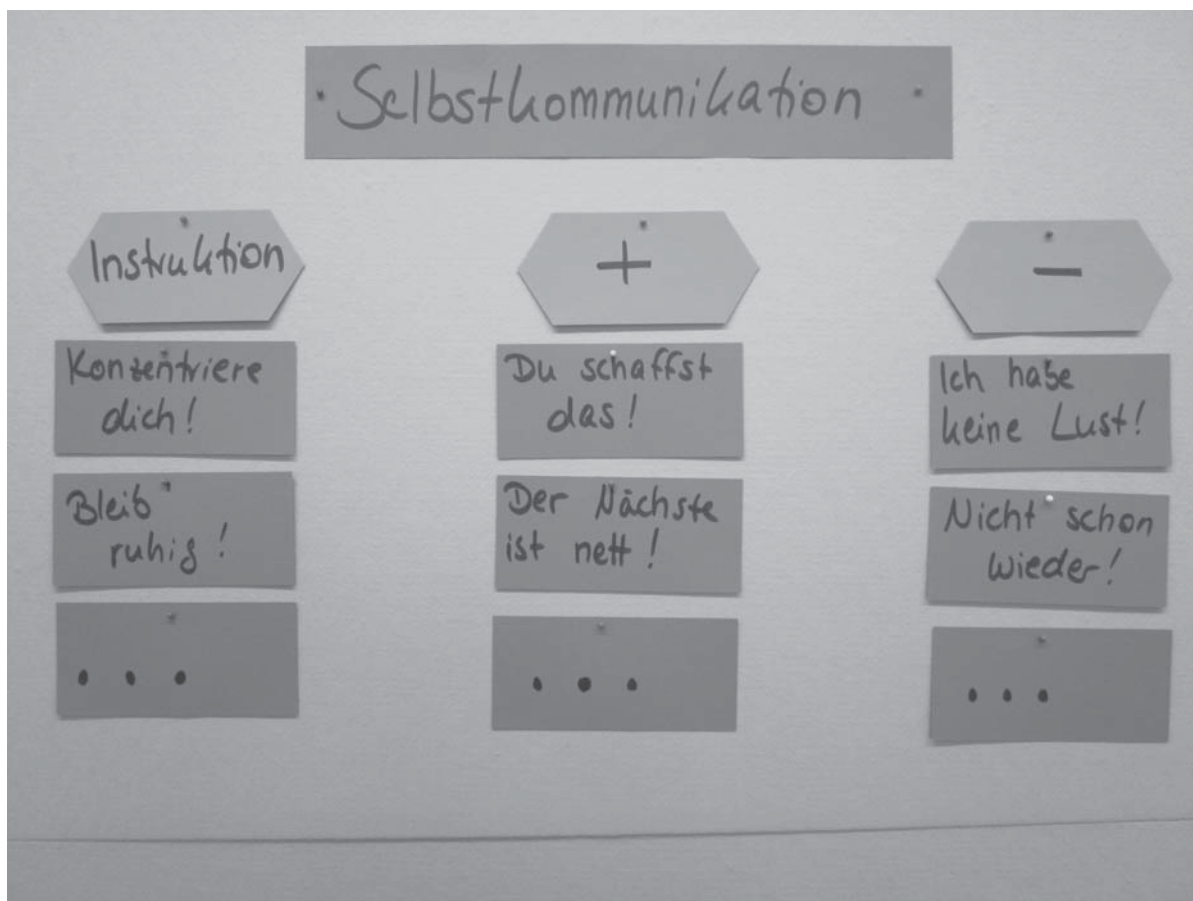 Selbstkommunikation
Instruktion
Konzentriere
dich!
Bleib
ruhig!
...
+
Du schaffst
das!
Der Nächste
ist nett!
...
–
Ich habe
keine Lust!
Nicht schon
wieder!
...